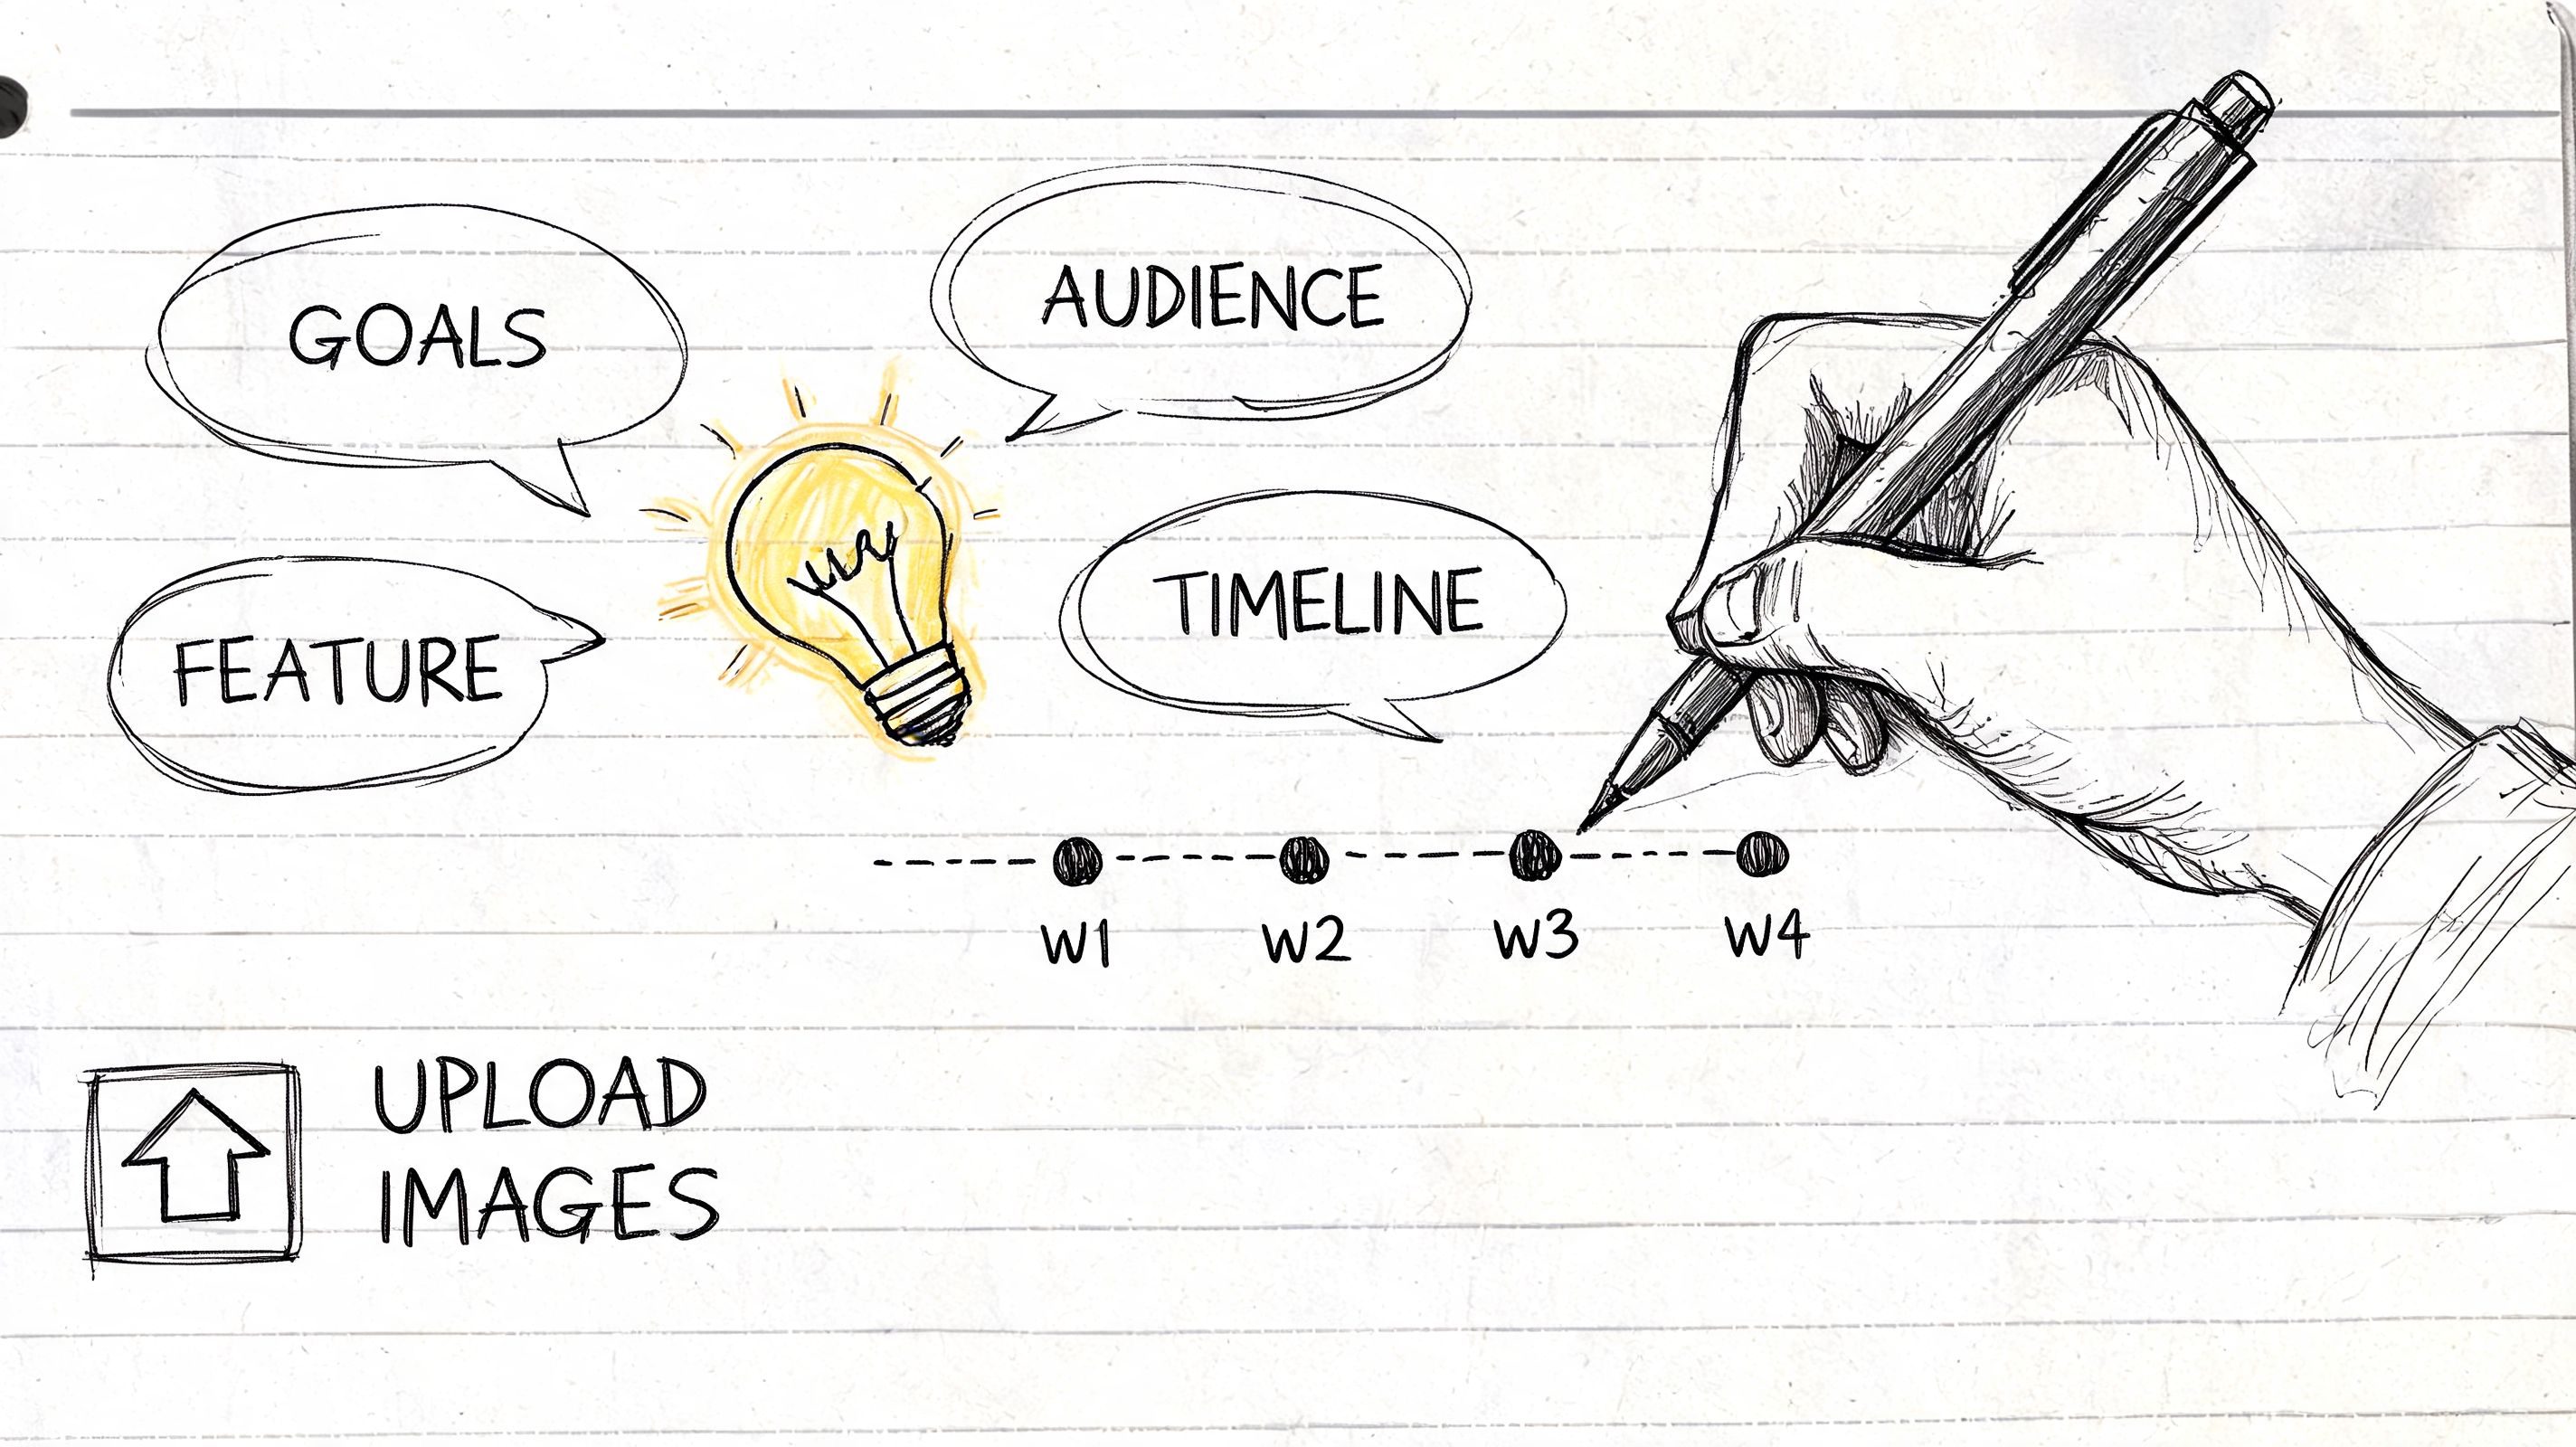 GOALS
AUDIENCE
FEATURE
TIMELINE
W1 W2 W3 W4
UPLOAD
IMAGES